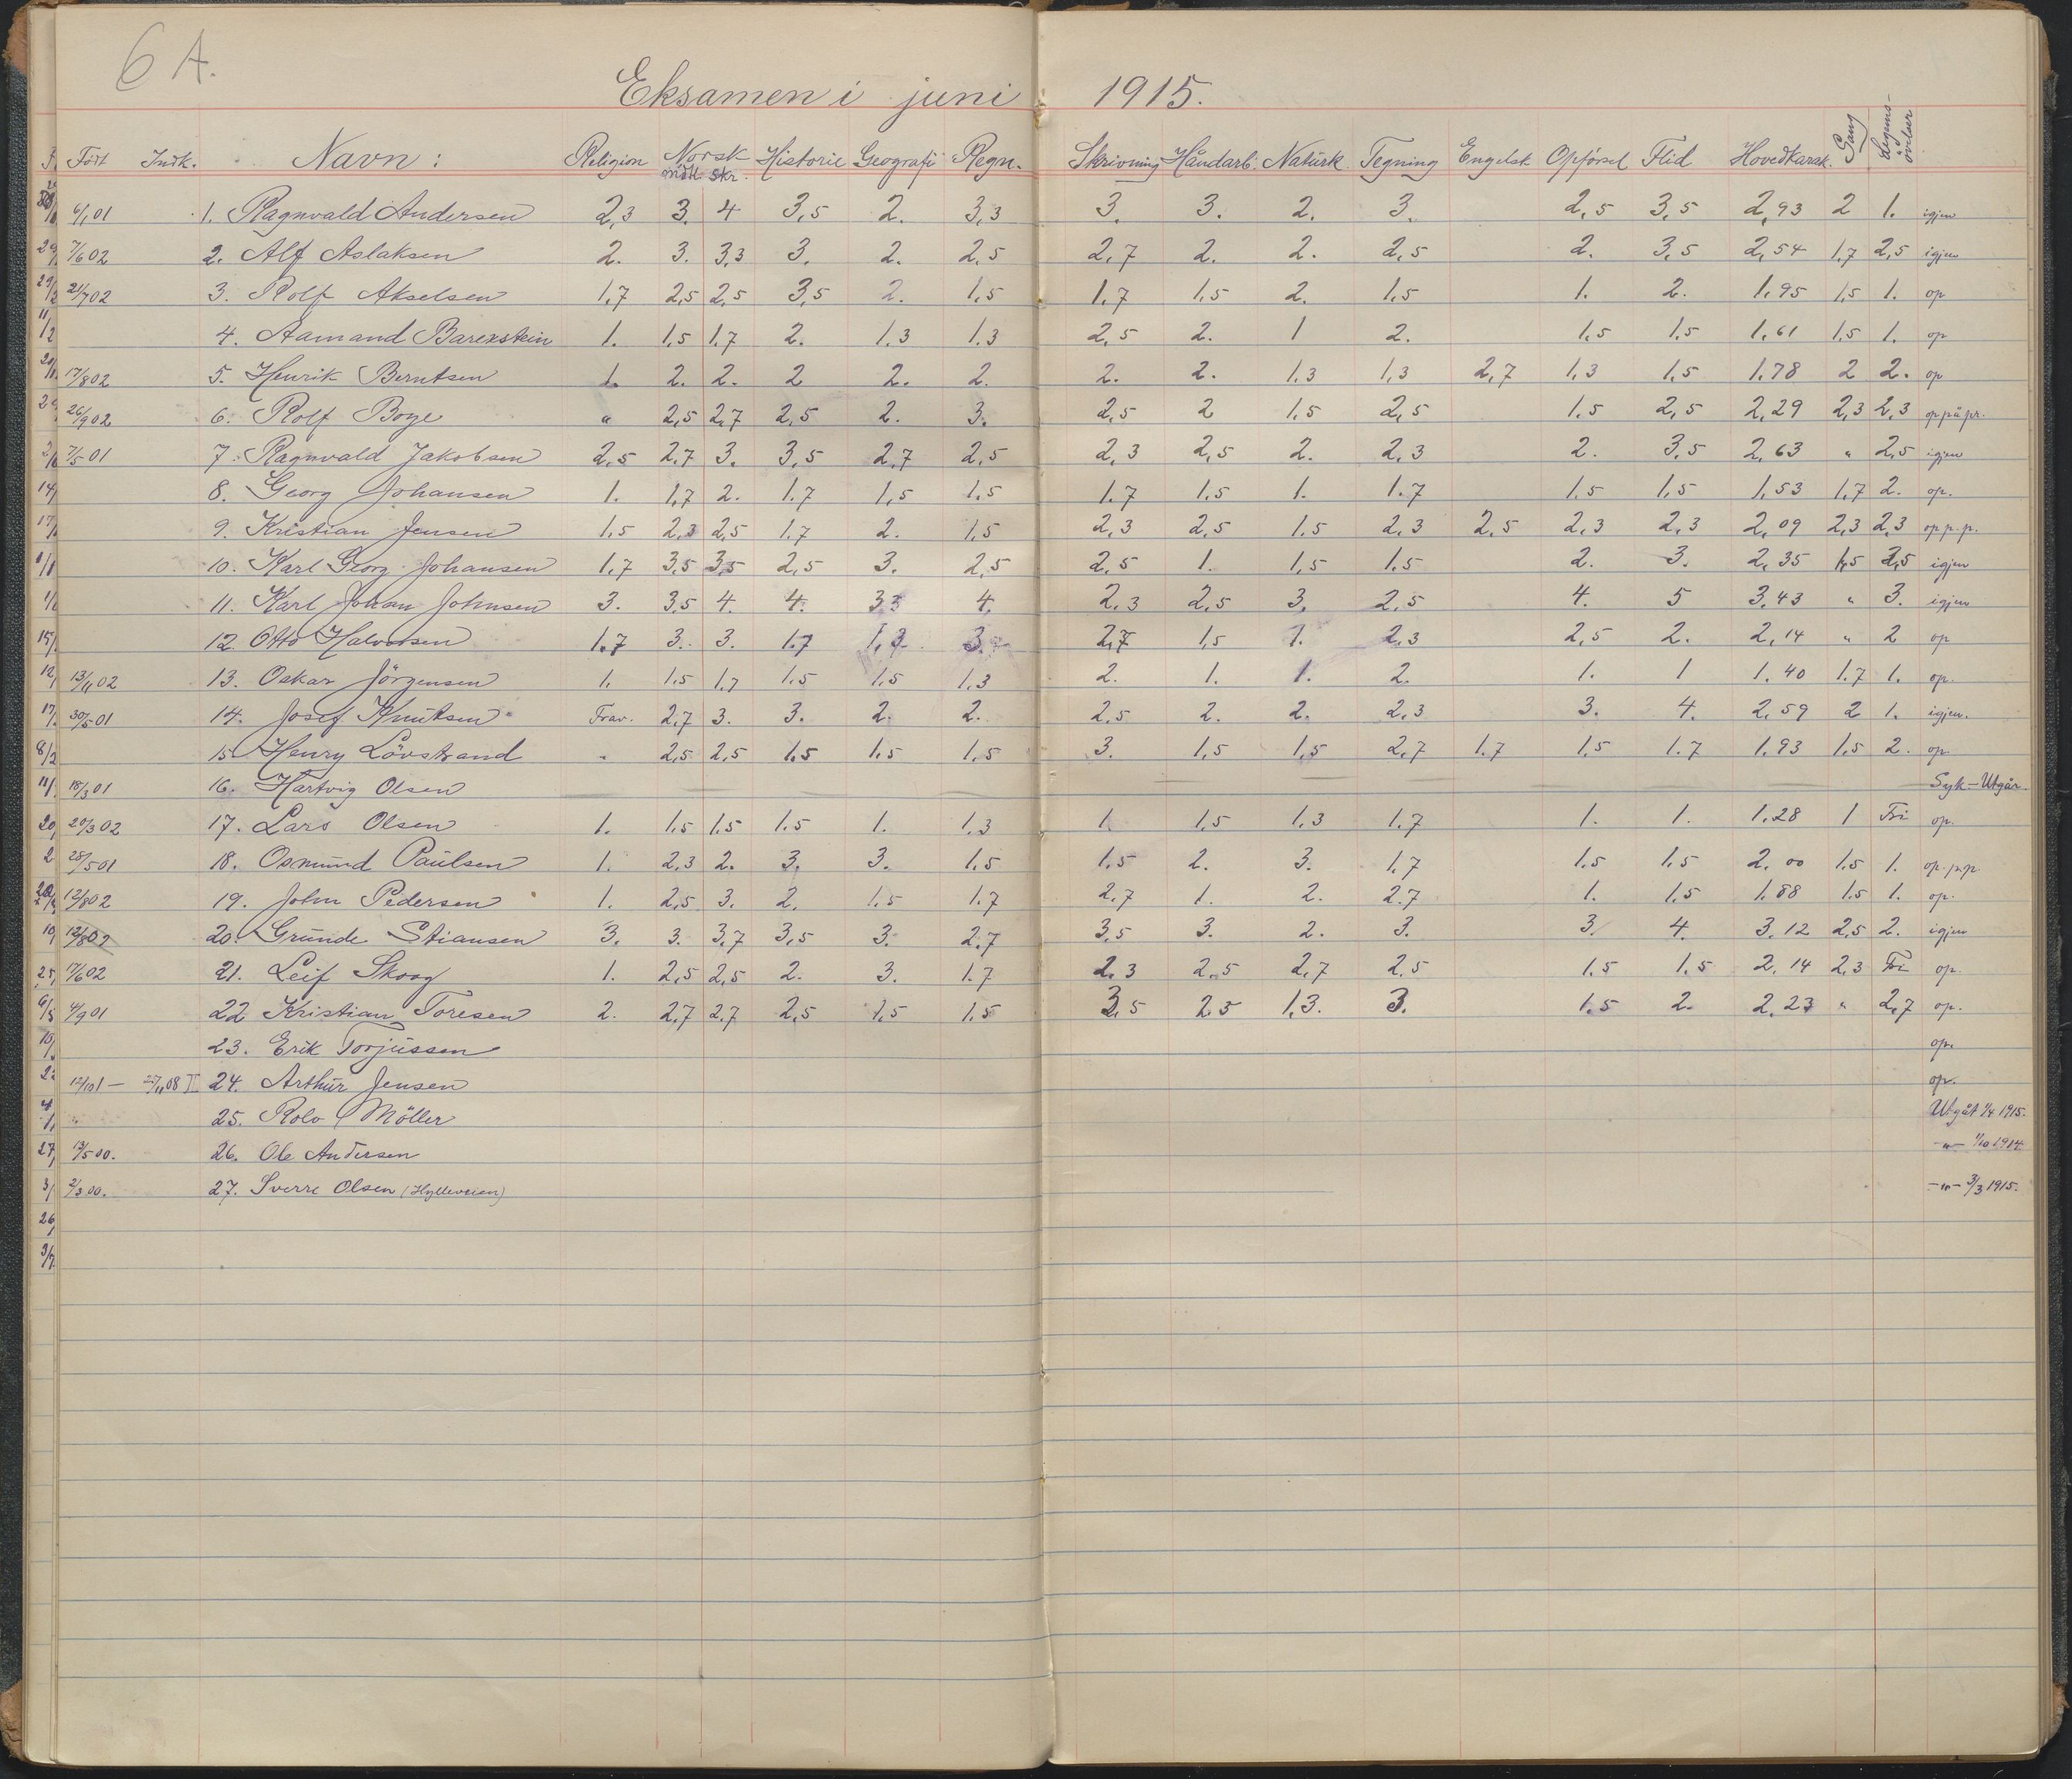 6 A.
Eksamen i juni 1915.
Født Indk. Navn: Religion Norsk Historie Geografi Regn. Skrivning Håndarb. Naturk. Tegning Engelsk Opførsel Flid Hovedkarak. Sang Legems-øvelser
mdtl. skr.
6/1 01 1. Ragnvald Andersen 2,3 3. 4 3,5 2. 3,3 3. 3. 2. 3. 2,5 3,5 2,93 2 1. igjen
7/6 02 2. Alf Aslaksen 2. 3. 3,3 3. 2. 2,5 2,7 2. 2. 2,5 2. 3,5 2,54 1,7 2,5 igjen
21/7 02 3. Rolf Akselsen 1,7 2,5 2,5 3,5 2. 1,5 1,7 1,5 2. 1,5 1. 2. 1,95 1,5 1. op
4. Aamand Barexstein 1. 1,5 1.7 2. 1,3 1.3 2,5 2. 1 2. 1,5 1,5 1,61 1,5 1. op
17/8 02 5. Henrik Berntsen 1. 2. 2. 2 2. 2. 2. 2. 1,3 1,3 2,7 1,3 1,5 1.78 2 2. op
26/9 02 6. Rolf Boye " 2,5 2,7 2,5 2. 3. 2,5 2 1,5 2,5 1,5 2,5 2,29 2,3 2,3 op på pr.
7/5 01 7. Ragnvald Jakobsen 2,5 2,7 3. 3,5 2,7 2,5 2,3 2,5 2. 2,3 2. 3,5 2,63 " 2,5 igjen
8. Georg Johansen 1. 1,7 2. 1.7 1,5 1,5 1.7 1,5 1. 1.7 1,5 1,5 1,53 1,7 2. op.
9. Kristian Jensen 1,5 2,3 2,5 1.7 2. 1,5 2,3 2,5 1.5 2,3 2,5 2,3 2,3 2,09 2,3 2,3 op p.p.
10. Karl Georg Johansen 1,7 3,5 3,5 2,5 3. 2,5 2,5 1. 1,5 1.5 2. 3. 2,35 1,5 2,5 igjen
11. Karl Johan Johnsen 3. 3,5 4. 4. 3,3 4. 2,3 2,5 3. 2,5 4. 5 3,43 " 3. igjen
12. Otto Halvorsen 1.7 3. 3. 1.7 1,3 3. 2,7 1,5 1. 2,3 2,5 2. 2,14 " 2 op
13/11 02 13. Oskar Jörgensen 1. 1.5 1.7 1.5 1.5 1,3 2. 1. 1. 2. 1. 1 1.40 1.7 1. op.
30/5 01 14. Josef Knutsen Frav. 2,7 3. 3. 2. 2. 2,5 2. 2. 2,3 3. 4. 2,59 2 1. igjen.
15. Henry Lövstrand " 2,5 2,5 1.5 1.5 1.5 3. 1,5 1,5 2,7 1.7 1,5 1.7 1,93 1,5 2. op
18/3 01 16. Hartvig Olsen Syk - Utgår.
20/3 02 17. Lars Olsen 1. 1.5 1.5 1.5 1. 1.3 1. 1.5 1.3 1.7 1. 1. 1,28 1 Fri op.
28/5 01 18. Osmund Paulsen 1. 2,3 2. 3. 3. 1.5 1.5 2. 3. 1.7 1.5 1,5 2,00 1.5 1. op. p.p.
12/8 02 19. John Pedersen 1. 2,5 3. 2. 1.5 1.7 2.7 1. 2. 2.7 1. 1,5 1.88 1.5 1. op.
12/8 02 20. Grunde Stiansen 3. 3. 3,7 3,5 3. 2.7 3,5 3. 2. 3. 3. 4. 3,12 2,5 2. igjen
17/6 02 21. Leif Skoog 1. 2,5 2,5 2. 3. 1.7 2.3 2.5 2,7 2,5 1.5 1.5 2,14 2,3 Fri op.
4/9 01 22 Kristian Toresen 2. 2,7 2.7 2,5 1,5 1.5 3,5 2.5 1,3. 3. 1.5 2. 2,23 " 2,7 op.
23. Erik Torjussen op.
12/10 1 - 27/11 08 II 24. Arthur Jensen op.
" 25. Rolv Möller Utgåt 1/4 1915.
13/5 00. 26. Ole Andersen -"- 1/10 1914
2/3 00. 27. Sverre Olsen (Hylleveien) -"- 3/3 1915.